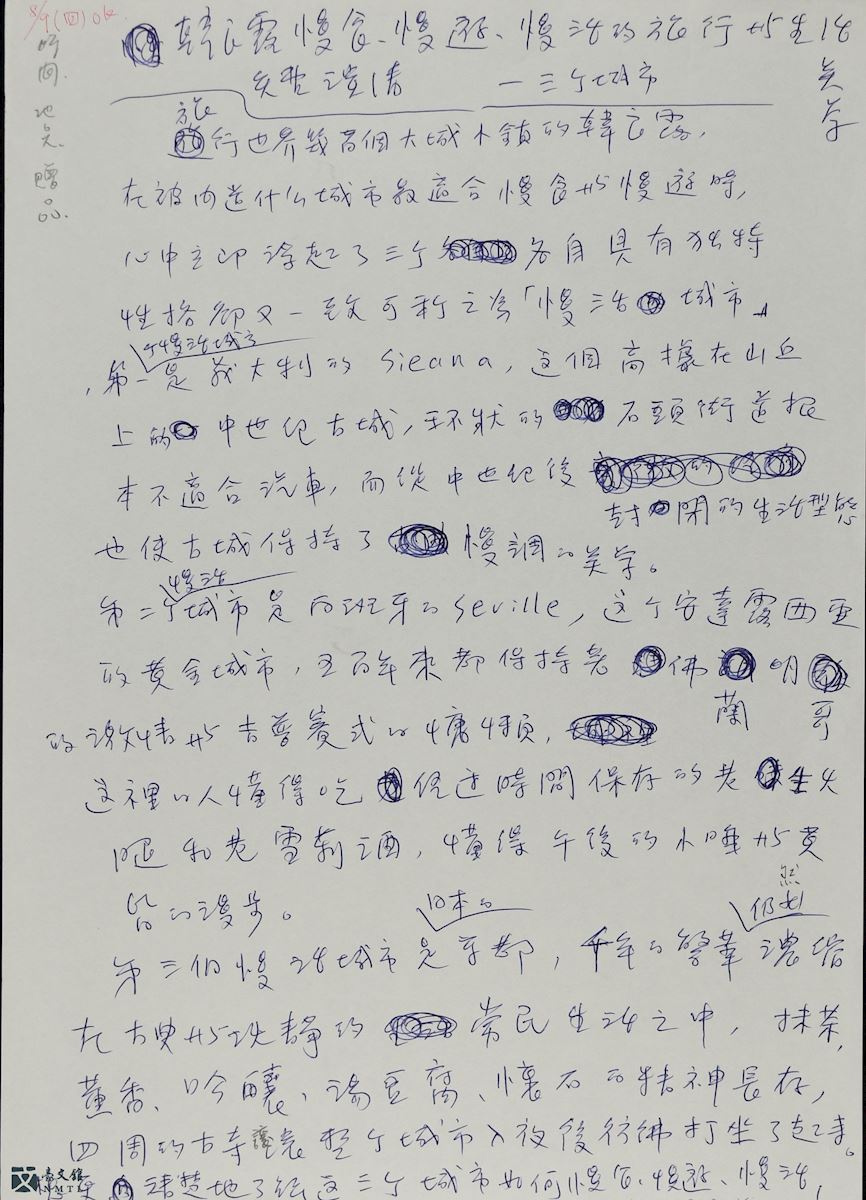 8/9(四) ok
時間、地點、贈品。
韓良露慢食、慢遊、慢活的旅行與生活美學
一三个城市
旅行世界幾百個大城小鎮的韓良露，
在被問道什么城市最適合慢食與慢遊時，
心中立即浮起了三个各自具有独特
性格卻又一致可称之為「慢活城市」
，第一个慢活城市是義大利的Sieana，這個高據在山丘
上的中世紀古城，环狀的石頭街道根
本不適合汽車，而從中世紀後封閉的生活型態
也使古城保持了慢調的美学。
第二个慢活城市是西班牙的Seville，这个安達露西亞
的黄金城市，五百年來都保持著佛蘭明哥
的熱情與吉普賽式的慵懶，
這裡的人懂得吃經過時間保存的老生火
腿和老雪莉酒，懂得午後的小睡與黄
昏的漫步。
第三個慢活城市是日本的京都，千年的繁華仍然濃縮
在古典與沈靜的常民生活之中，抹茶、
薰香、吟釀、湯豆腐、懷石的精神長存，
四周的古寺讓整个城市入夜後彷彿打坐了起來。
清楚地了解這三个城市如何慢食、慢遊、慢活，
臺文館
NMTL